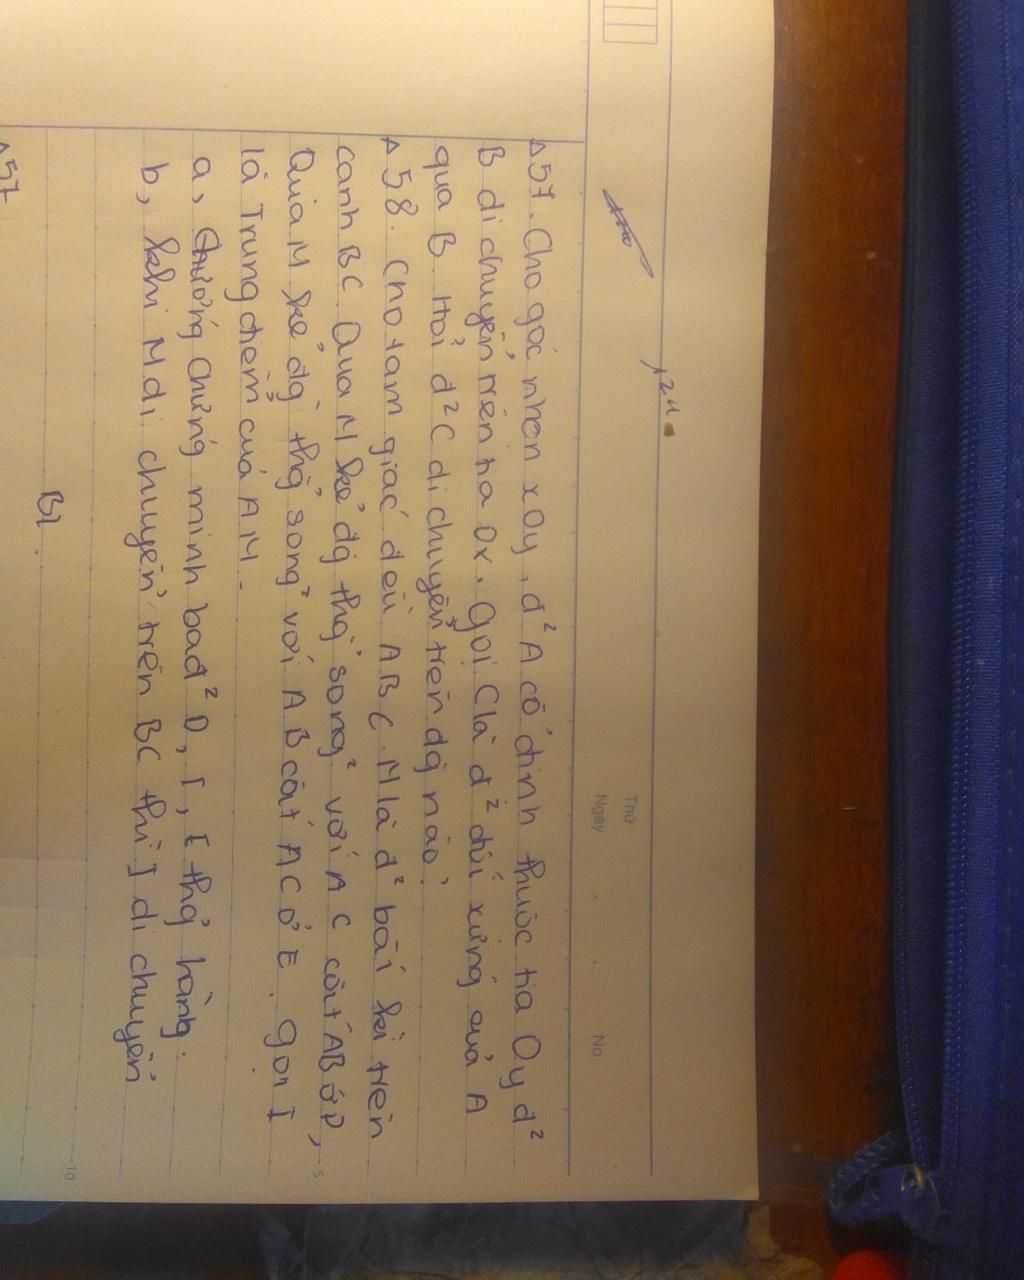 Thứ
Ngày . . No.
, 24
Δ57. Cho góc nhọn xOy, đ² A cố định thuộc tia Oy đ²
B di chuyển trên tia Ox. Gọi C là đ² đối xứng của A
qua B Hỏi đ² C di chuyển trên đg nào.
Δ58. Cho tam giác đều ABC. M là đ² bất kì trên
cạnh BC. Qua M kẻ đg thg song² với AC cắt AB ở D,
Qua M kẻ đg thg song² với AB cắt AC ở E. gọi I
là Trung điểm của AM.
a, Chứng minh ba đ² D, I, E thg hàng.
b, khi M di chuyển trên BC thì I di chuyển
B1
Δ57
5
10